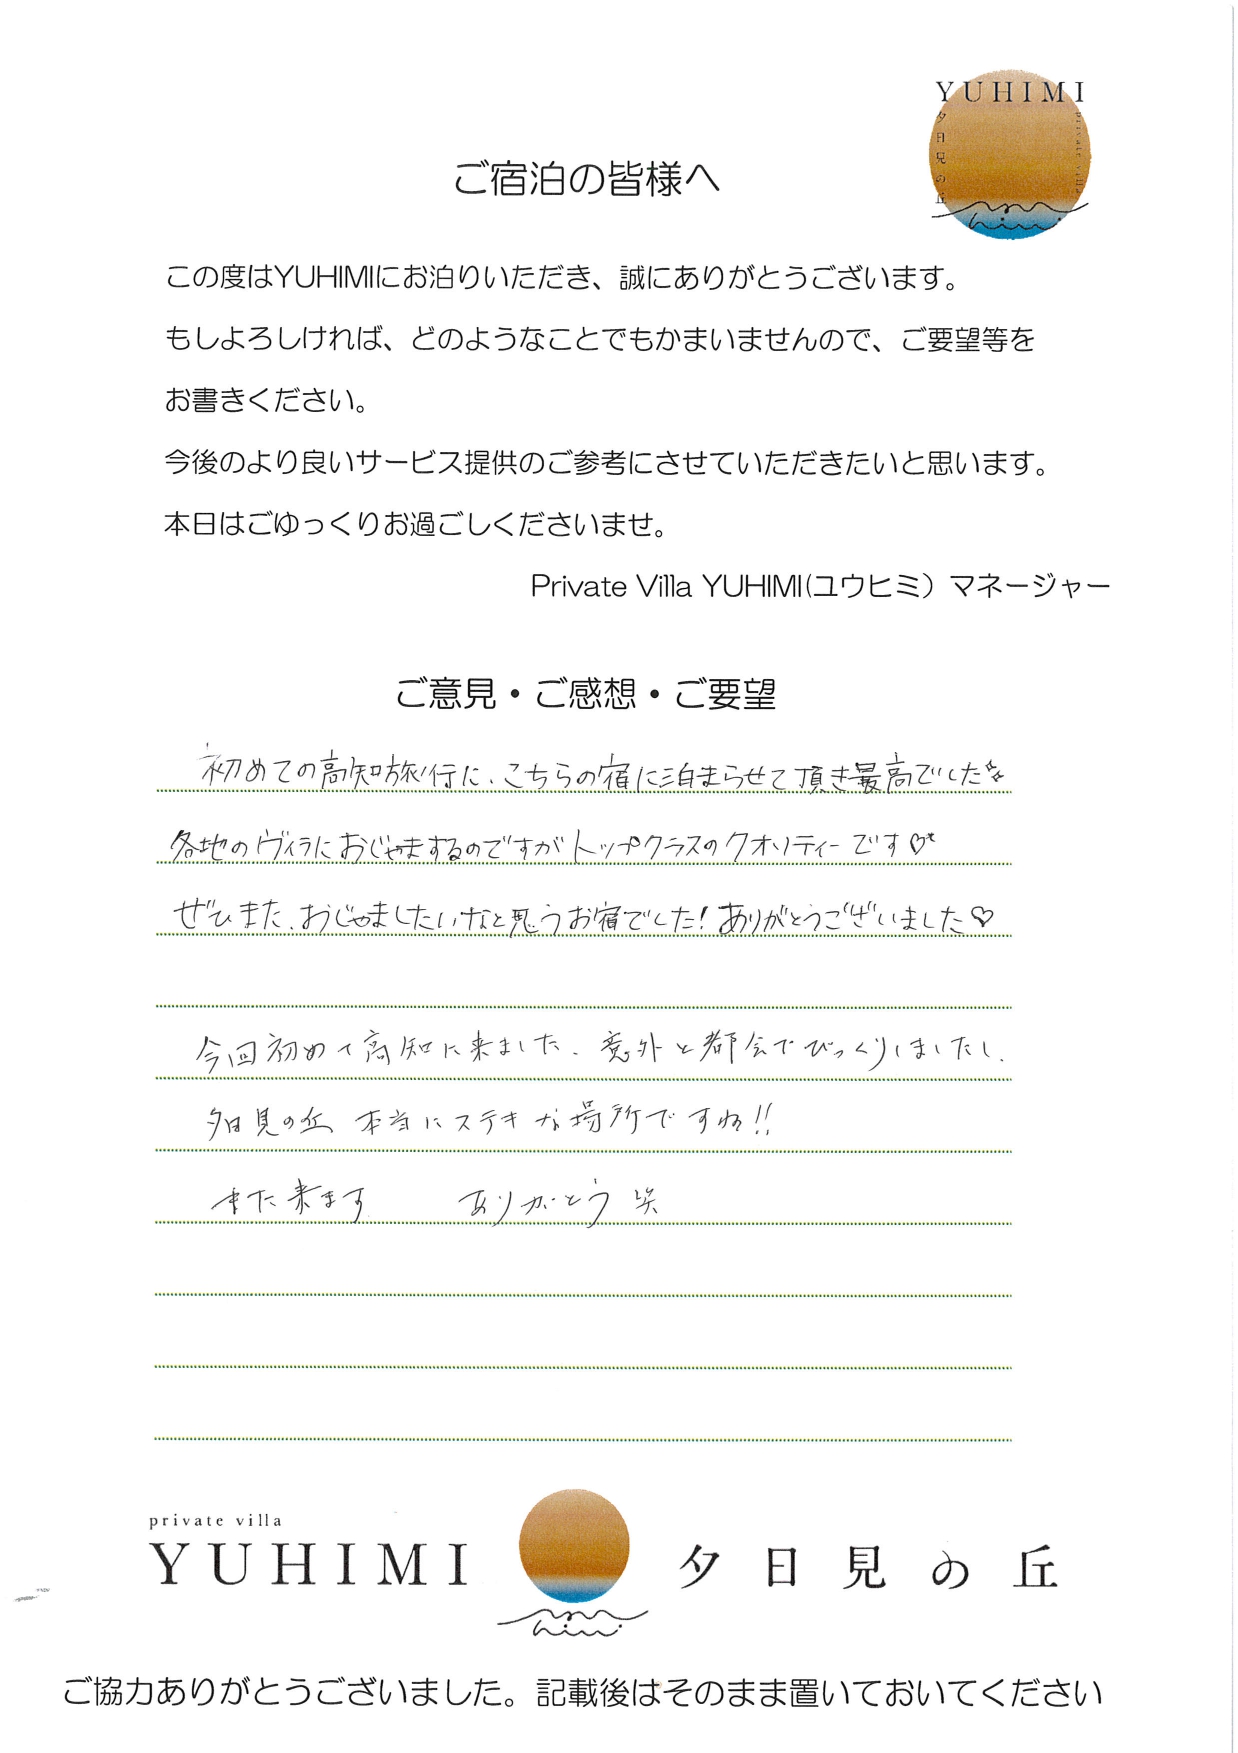 YUHIMI
夕日見の丘
private villa
ご宿泊の皆様へ
この度はYUHIMIにお泊りいただき、誠にありがとうございます。
もしよろしければ、どのようなことでもかまいませんので、ご要望等を
お書きください。
今後のより良いサービス提供のご参考にさせていただきたいと思います。
本日はごゆっくりお過ごしくださいませ。
Private Villa YUHIMI(ユウヒミ）マネージャー
ご意見・ご感想・ご要望
初めての高知旅行に、こちらの宿に泊まらせて頂き最高でした
各地のヴィラにおじゃまするのですがトップクラスのクオリティーです♡
ぜひまた、おじゃましたいなと思うお宿でした！ありがとうございました♡
今回初めて高知に来ました、意外と都会でびっくりしましたし、
夕日見の丘、本当にステキな場所ですね!!
また来ます　ありがとう 笑
private villa
YUHIMI 夕日見の丘
ご協力ありがとうございました。記載後はそのまま置いておいてください